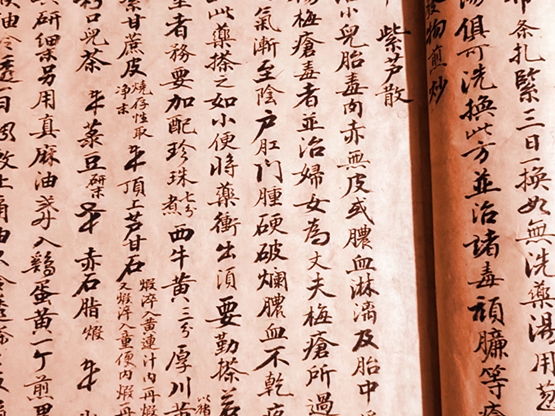 条扎緊三日一換如無洗藥湯用
湯俱可洗換此方並治諸毒頑臁等
狗煎炒
紫芦散
小兒胎毒肉赤無皮或膿血淋漓及胎中
梅瘡毒者並治婦女為丈夫梅瘡所過
氣漸至陰户肛門腫硬破爛膿血不乾
此藥搽之如小便時藥衝出須要勤搽若
者務要加配珍珠七分煮西牛黄三分厚川黄
紫甘蔗皮燒存性取净末頂上芦甘石煅淬入黄連汁内再煅又煅淬入童便内煅再
口兒茶菉豆研末赤石脂煅
研細末另用真麻油入鷄蛋黄一个煎黑